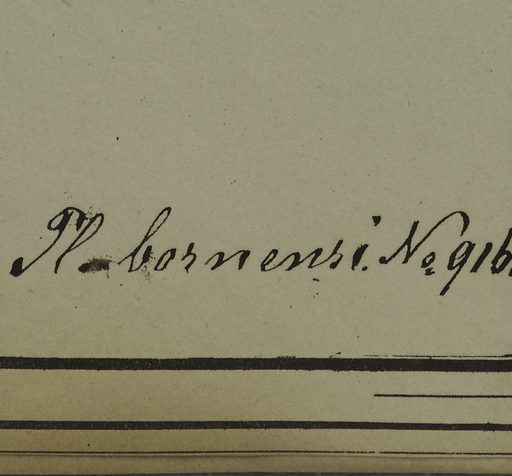 Pl. bornensi. No 916.